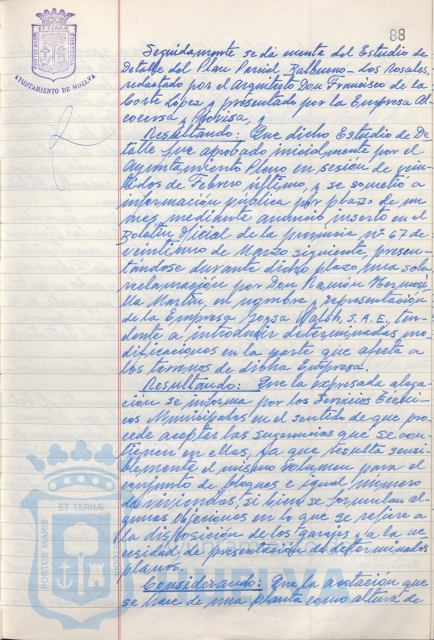 88
AYUNTAMIENTO DE HUELVA
Seguidamente se da cuenta del Estudio de
Detalle del Plan Parcial Balbueno-Los Rosales,
redactado por el Arquitecto Don Francisco de la
Corte López y presentado por la Empresa Al-
cocersa y
Resultando: Que dicho Estudio de De-
talle fue aprobado inicialmente por el
Ayuntamiento Pleno en sesión de vein-
tidos de Febrero último, y se sometió a
información pública por plazo de un
mes mediante anuncio inserto en el
Boletín Oficial de la provincia nº 67 de
veintiuno de Marzo siguiente, presen-
tándose durante dicho plazo una sola
reclamación por Don Ramón Hermosi-
lla Martín, en nombre y representación
de la Empresa Walsh, S.A.E., ten-
dente a introducir determinadas mo-
dificaciones en la parte que afecta a
los terrenos de dicha Empresa.
Resultando: Que la expresada alega-
ción se informa por los Servicios Técni-
cos Municipales en el sentido de que pro-
cede aceptar las sugerencias que se con-
tienen en ellas, ya que resulta sensi-
blemente el mismo volumen para el
conjunto de bloques e igual número
de viviendas, si bien se formulan al-
gunas objeciones en lo que se refiere a
la disposición de los garajes y a la ne-
cesidad de presentación de determinados
planos.
Considerando: Que la acotación que
se hace de una planta como altura de
PORTUS MARIS ET TERRAE
HUELVA